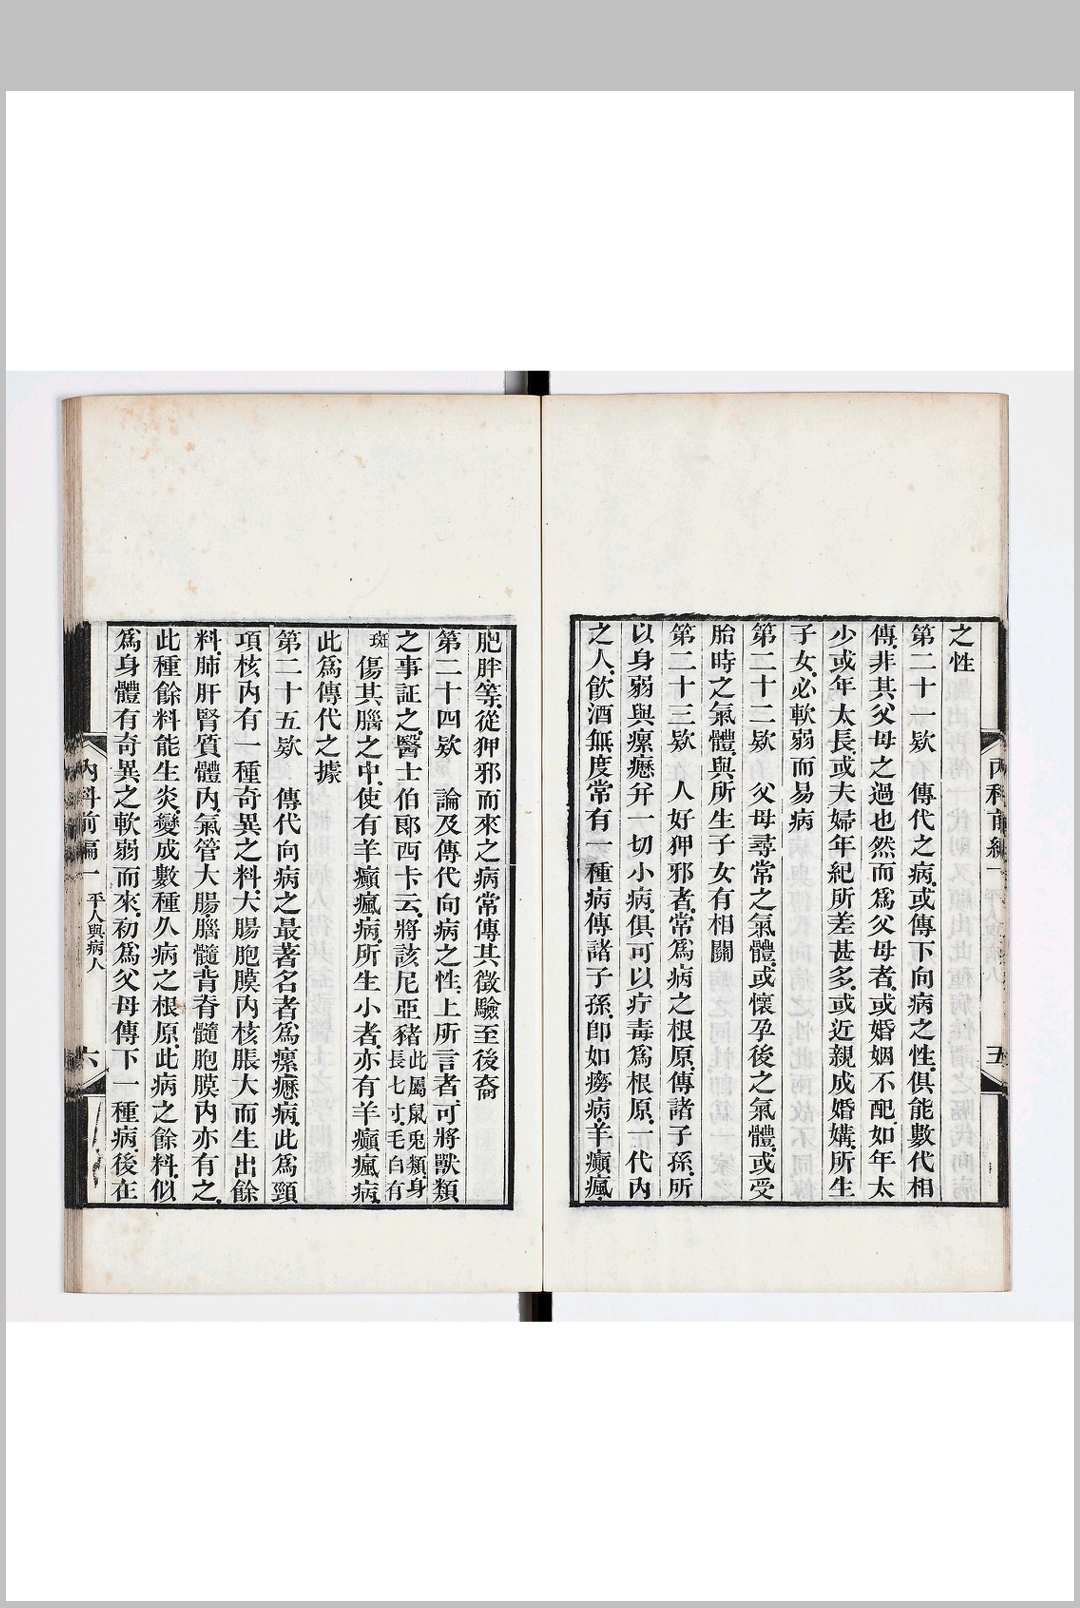 之性
第二十一欵　傳代之病或傳下向病之性俱能數代相
傳非其父母之過也然而為父母者或婚姻不配如年太
少或年太長或夫婦年紀所差甚多或近親成婚媾所生
子女必軟弱而易病
第二十二欵　父母尋常之氣體或懷孕後之氣體或受
胎時之氣體與所生子女有相關
第二十三欵　人好狎邪者常為病之根原傳諸子孫所
以身弱與瘰癧并一切小病俱可以疔毒為根原一代內
之人飲酒無度常有一種病傳諸子孫卽如癆病羊癲瘋
內科前編一
五
肥胖等從狎邪而來之病常傳其徵驗至後裔
第二十四欵　論及傳代向病之性上所言者可將獸類
之事証之醫士伯郎西卡云將該尼亞豬此屬鼠兎類身長七寸毛白有
斑傷其腦之中使有羊癲瘋病所生小者亦有羊癲瘋病
此為傳代之據
第二十五欵　傳代向病之最著名者為瘰癧病此為頸
項核內有一種奇異之料大腸胞膜內核脹大而生出餘
料肺肝腎質體內氣管大腸腦髓背脊髓胞膜內亦有之
此種餘料能生炎變成數種久病之根原此病之餘料似
為身體有奇異之軟弱而來初為父母傳下一種病後在
內科前編一　平人與病人
六